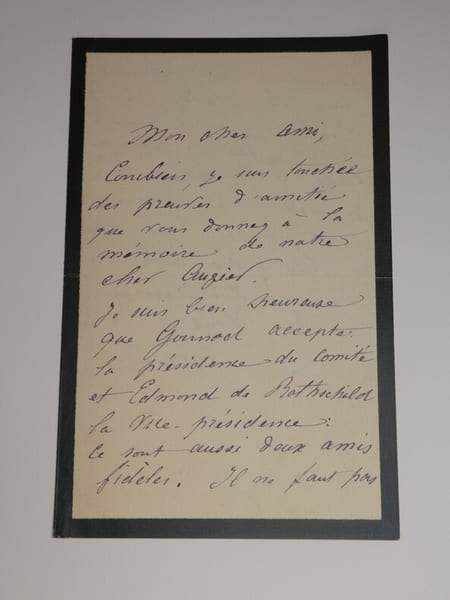 Mon cher ami,
Combien, je suis touchée
des preuves d'amitié
que vous donnez à la
mémoire de notre
cher Augier.
Je suis bien heureuse
que Gounod accepte
la présidence du comité
et Edmond de Rothschild
la vice-présidence :
ce sont aussi deux amis
fidèles. Il ne faut pas